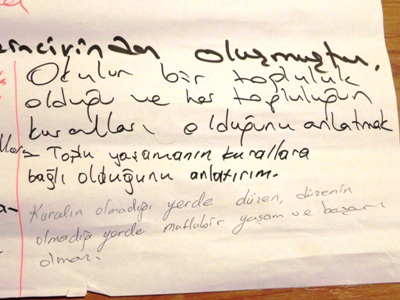 zincirinden oluşmuştur.
Okulun bir topluluk
olduğu ve her topluluğun
kuralları olduğunu anlatmak
Toplu yaşamanın kurallara
bağlı olduğunu anlatırım.
Kuralın olmadığı yerde düzen, düzenin
olmadığı yerde mutlu bir yaşam ve başarı
olmaz.